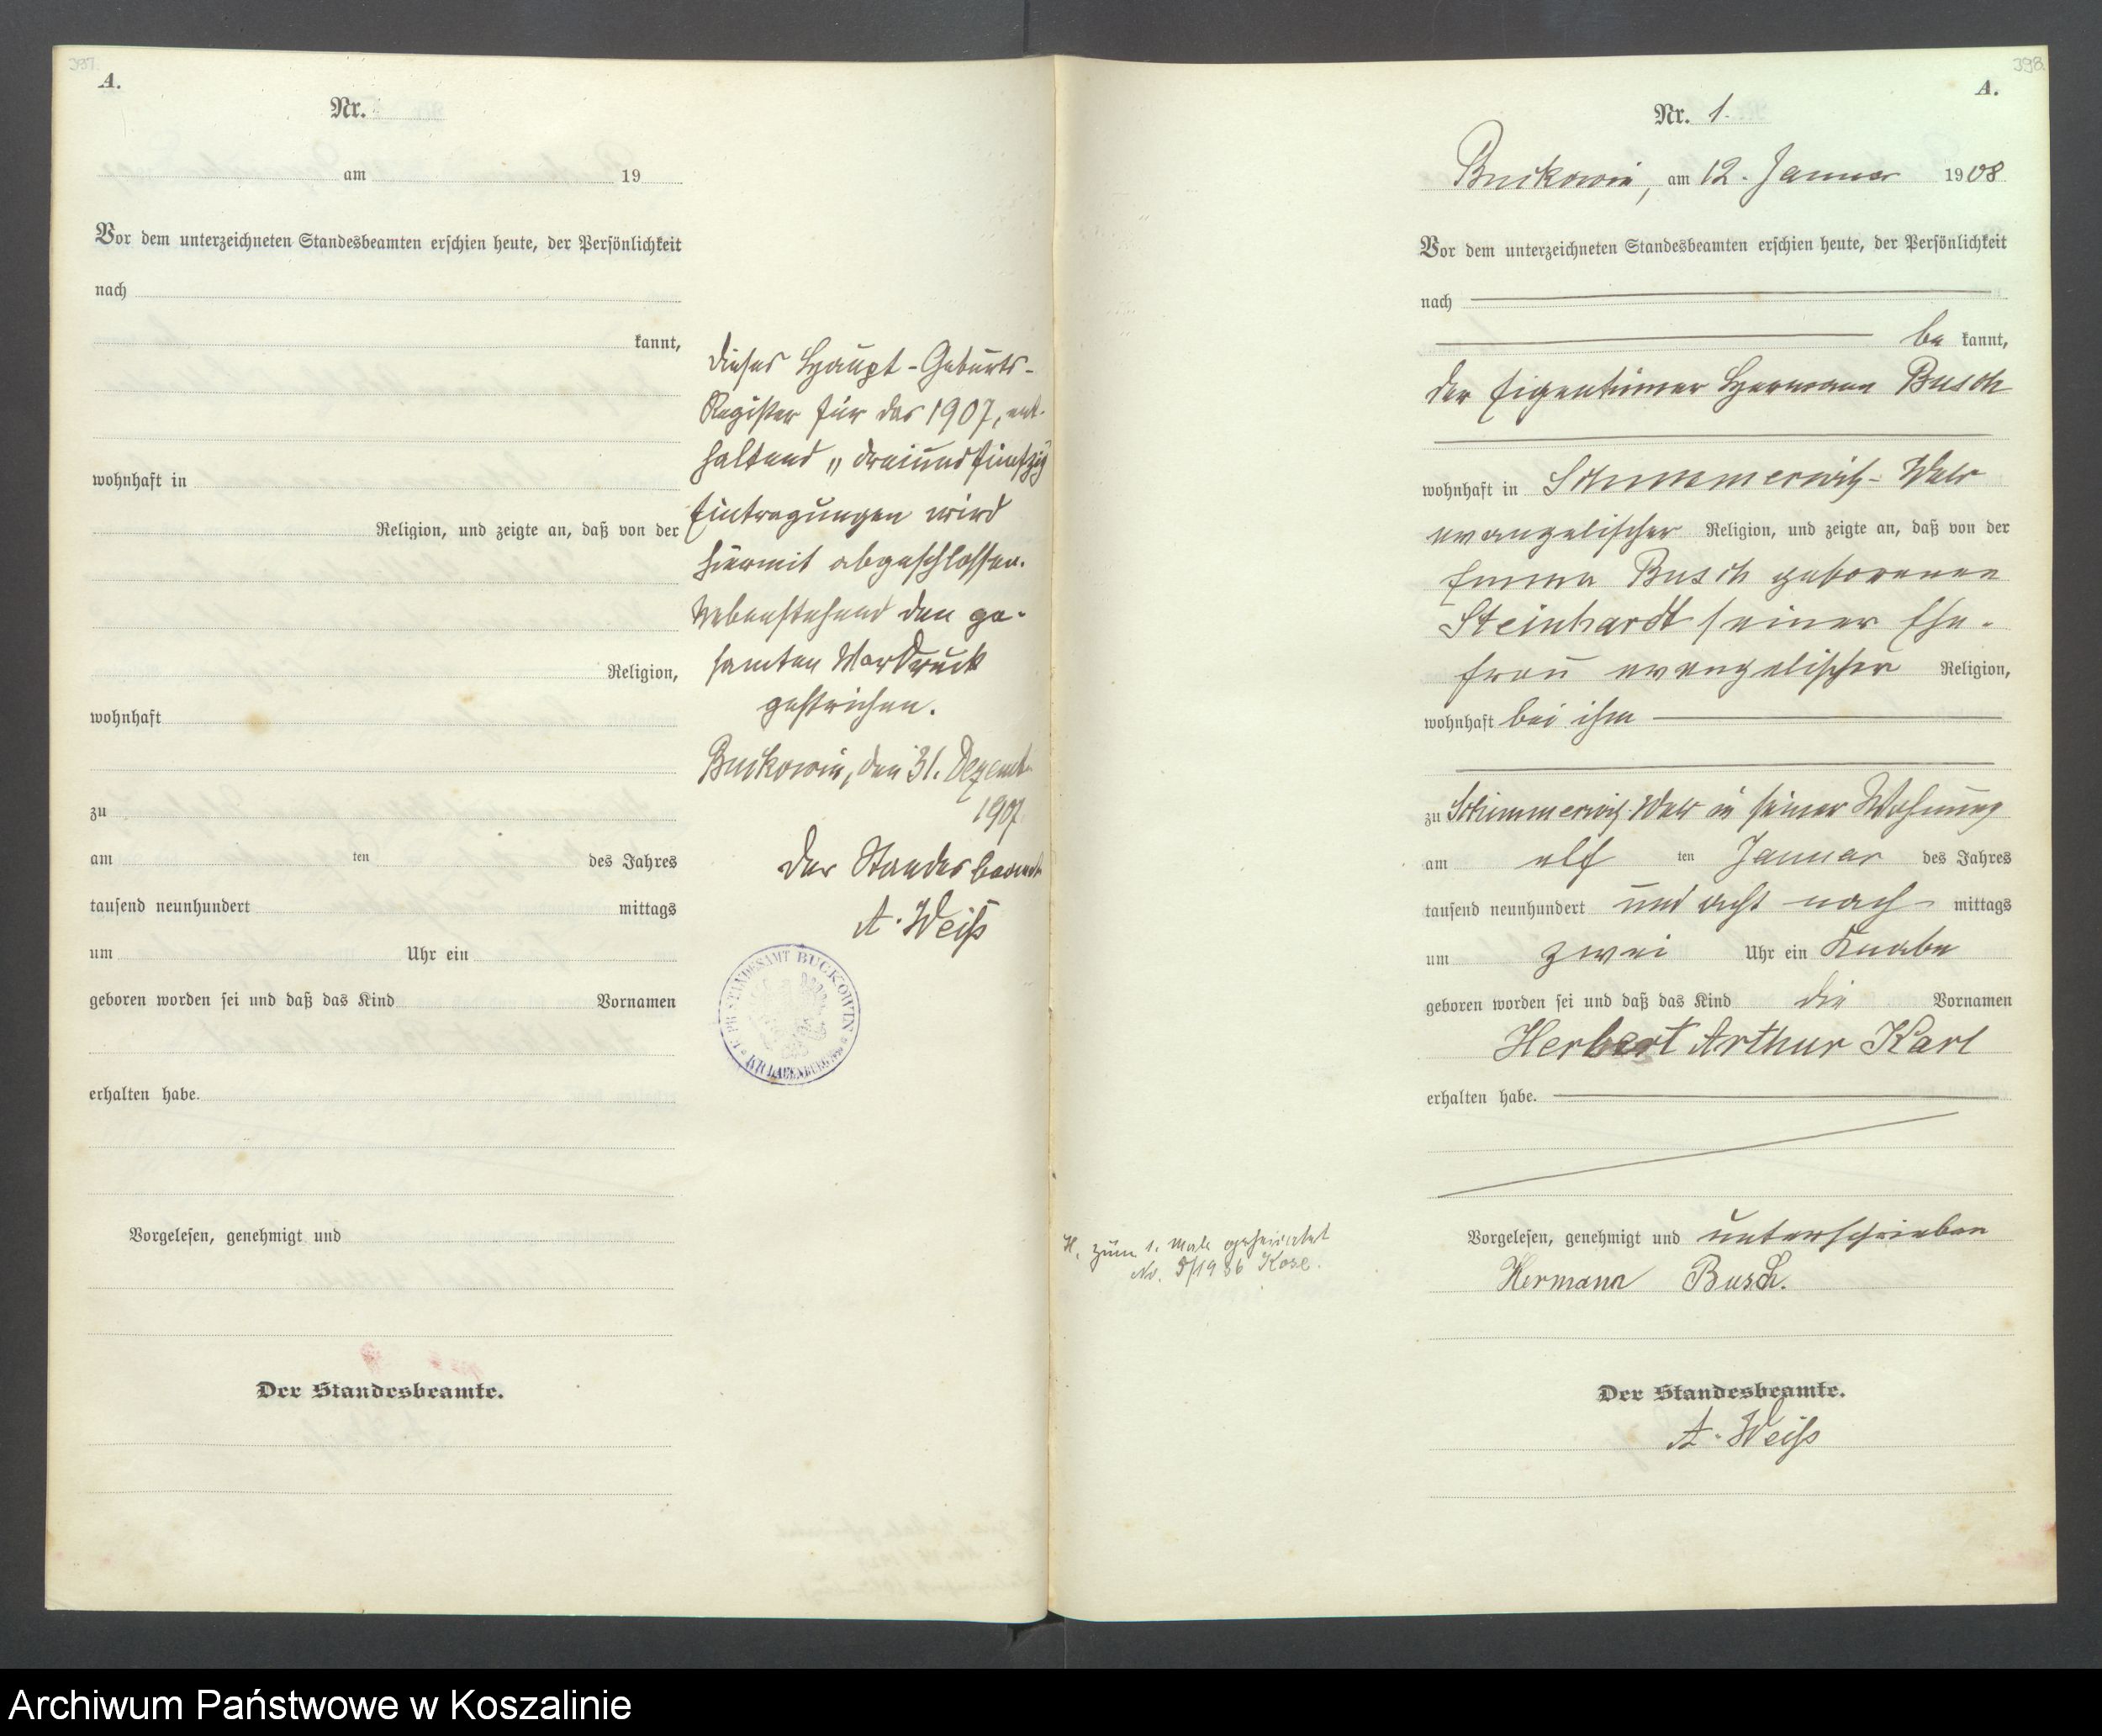 397.
A.
Nr.
am 19
Vor dem unterzeichneten Standesbeamten erschien heute, der Persönlichkeit
nach
kannt,
wohnhaft in
Religion, und zeigte an, daß von der
Religion,
wohnhaft
zu
am ten des Jahres
tausend neunhundert mittags
um Uhr ein
geboren worden sei und daß das Kind Vornamen
erhalten habe.
Vorgelesen, genehmigt und
Der Standesbeamte.
Dieses Haupt-Geburts-
Register für das 1907, ent-
haltend „ dreiundfünfzig
Eintragungen wird
hiermit abgeschlossen.
Nebenstehend den ge-
samten Vordruck
gestrichen.
Buckowin, den 31. Dezemb.
1907
Der Standesbeamte
A. Weiß
K. PR. STANDESAMT BUCKOWIN
KR. LAUENBURG
398.
A.
Nr. 1.
Buckowin, am 12. Januar 1908
Vor dem unterzeichneten Standesbeamten erschien heute, der Persönlichkeit
nach
be kannt,
der Eigentümer Hermann Busch
wohnhaft in Schimmerwitz-
evangelischer Religion, und zeigte an, daß von der
Emma Busch geborenen
Steinhardt seiner Ehe-
frau evangelischer Religion,
wohnhaft bei ihm
zu Schimmerwitz in seiner Wohnung
am elf ten Januar des Jahres
tausend neunhundert und acht nach- mittags
um zwei Uhr ein Knabe
geboren worden sei und daß das Kind die Vornamen
Herbert Arthur Karl
erhalten habe.
Vorgelesen, genehmigt und unterschrieben
Hermann Busch.
Der Standesbeamte.
A. Weiß
H. zum 1. Male geheiratet
No. 5/1936
Archiwum Państwowe w Koszalinie